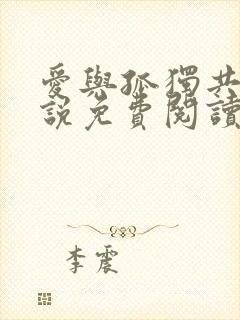 愛與孤獨共
說免費閱讀
李震